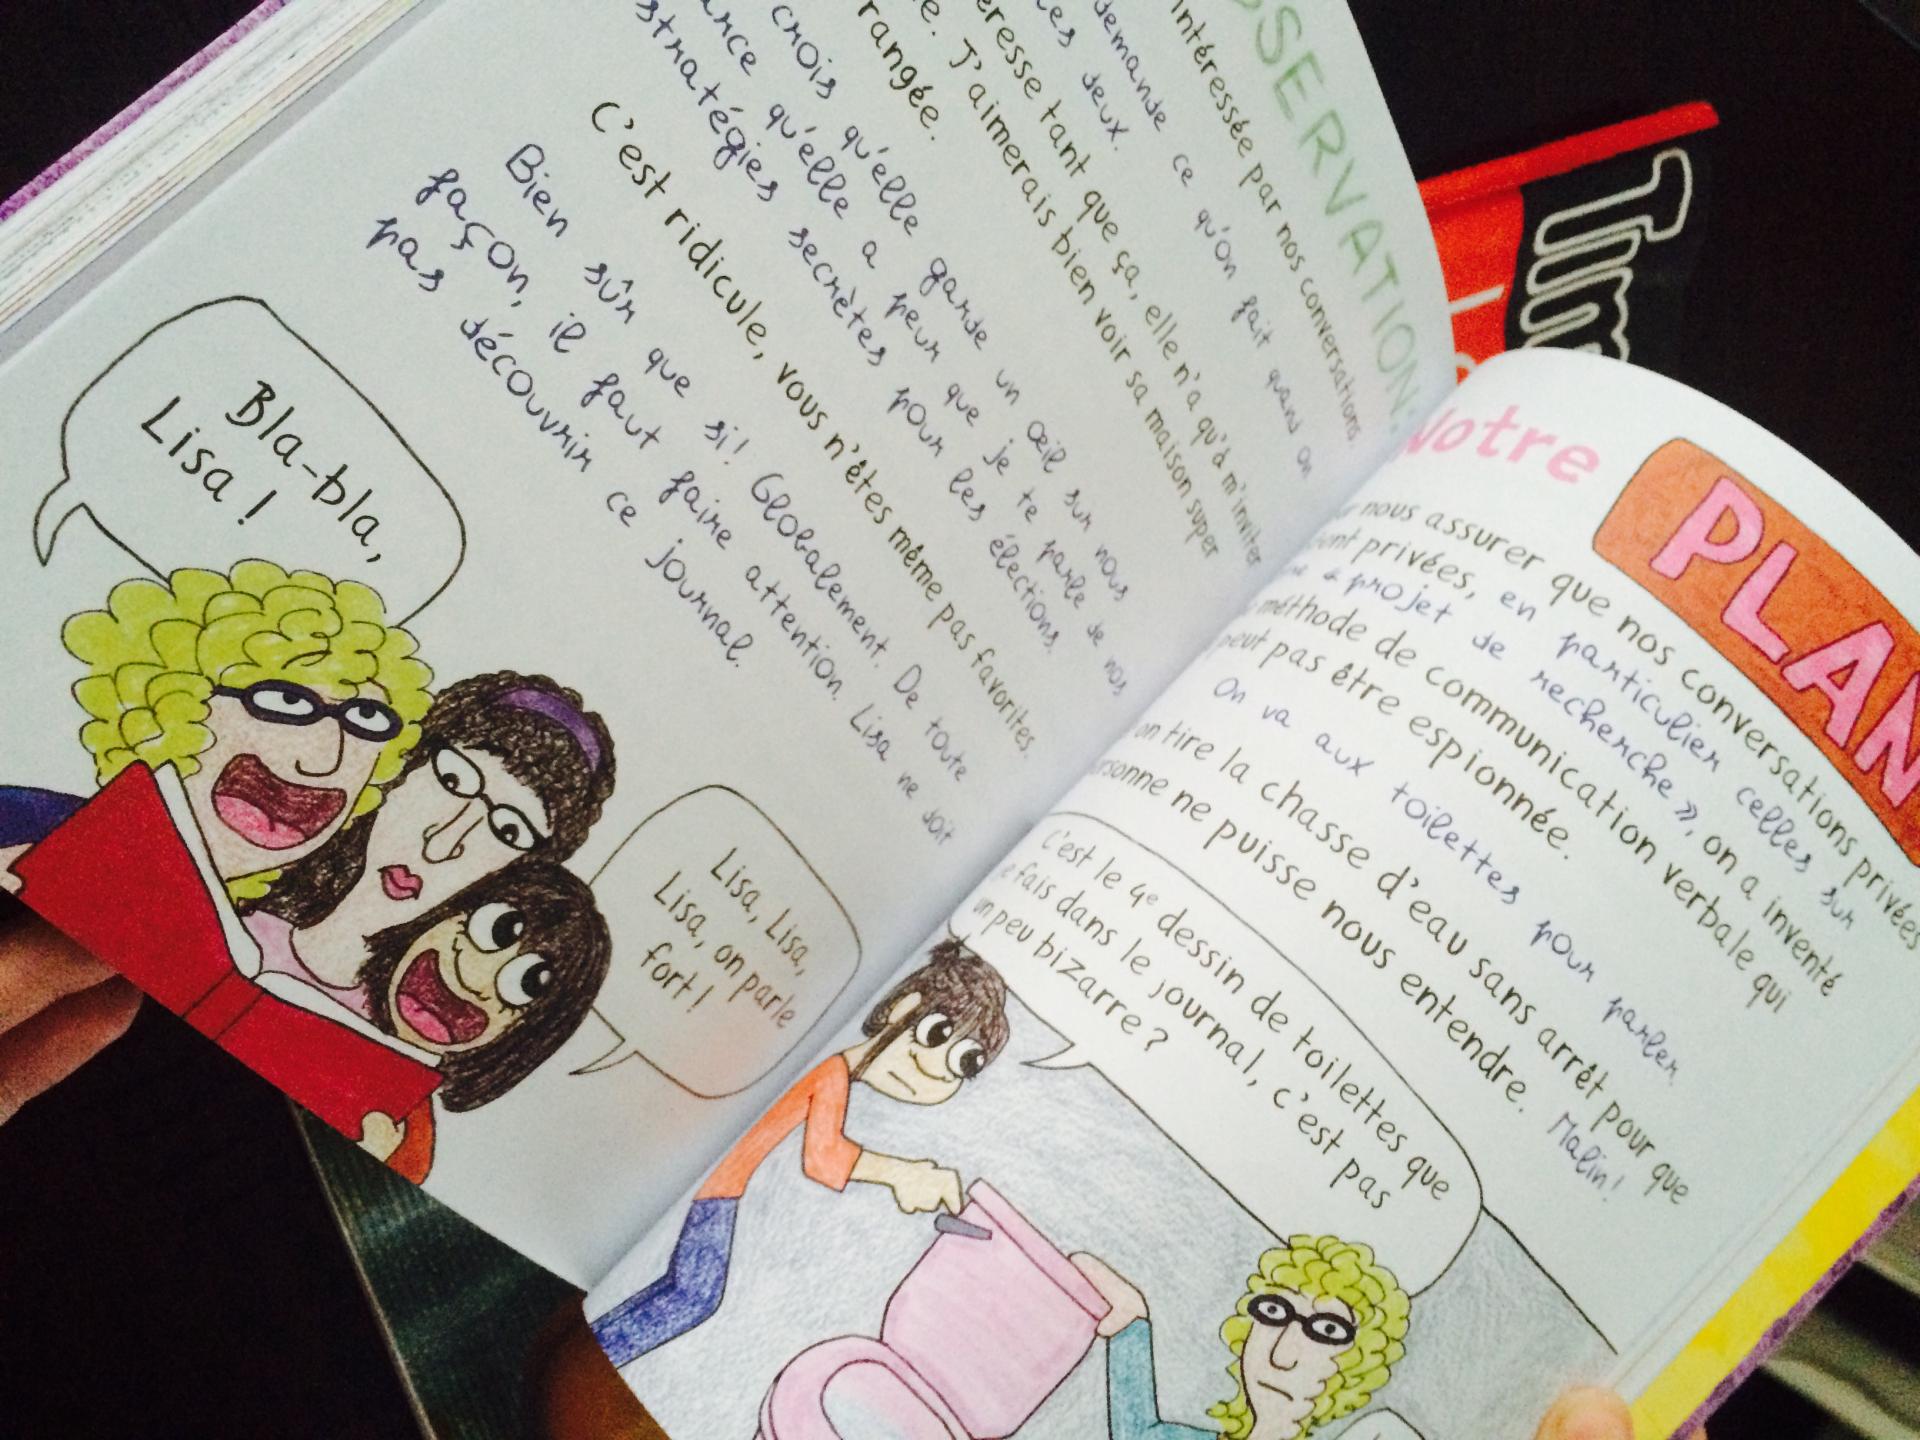 OBSERVATION.
intéressée par nos conversations.
demande ce qu'on fait quand on
les deux.
éresse tant que ça, elle n'a qu'à m'inviter
J'aimerais bien voir sa maison super
rangée.
crois qu'elle garde un œil sur nous
qu'elle a peur que je te parle de nos
stratégies secrètes pour les élections.
C'est ridicule, vous n'êtes même pas favorites.
Bien sûr que si! Globalement. De toute
façon, il faut faire attention. Lisa ne doit
pas découvrir ce journal.
Bla-bla,
Lisa !
Lisa, Lisa,
Lisa, on parle
fort !
Notre
PLAN
nous assurer que nos conversations privées
privées, en particulier celles sur
« projet de recherche », on a inventé
méthode de communication verbale qui
peut pas être espionnée.
On va aux toilettes pour parler
on tire la chasse d'eau sans arrêt pour que
personne ne puisse nous entendre. Malin!
C'est le 4e dessin de toilettes que
je fais dans le journal, c'est pas
un peu bizarre ?